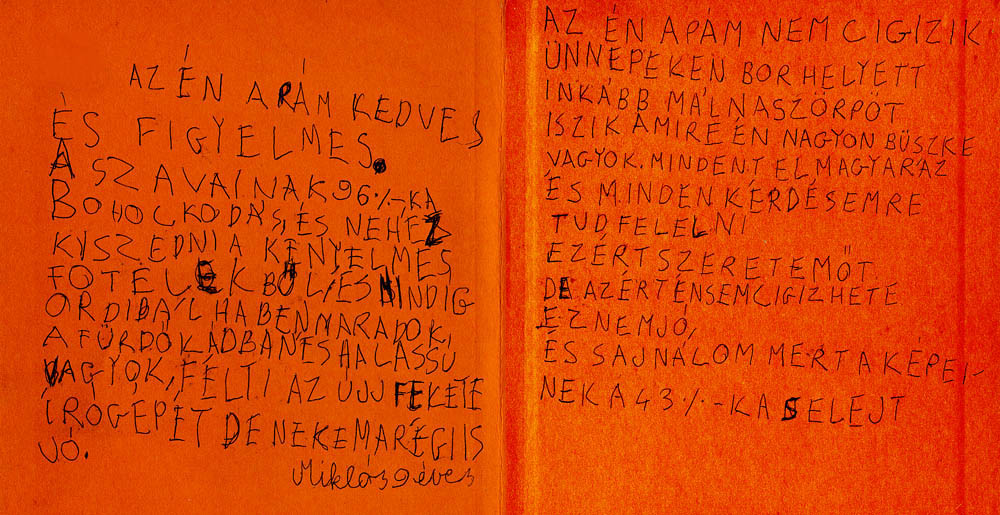 AZ ÉN APÁM KEDVES
ÉS FIGYELMES.
A SZAVAINAK 96%-KA
BOHOCKODÁS, ÉS NEHEZ
KISZEDNI A KÉNYELMES
FOTELEKBŐL, ÉS MINDIG
ORDIBÁL HA BENNMARADOK,
A FÜRDŐKÁDBAN ÉS HA LASSU
VAGYOK, FÉLTI AZ ÚJJ FEKETE
ÍRÓGÉPÉT DE NEKEM A RÉGI IS
JÓ.
Miklós 9 éves
AZ ÉN APÁM NEM CIGIZIK
ÜNNEPEKEN BOR HELYETT
INKÁBB MÁLNASZÖRPÖT
ISZIK AMIRE ÉN NAGYON BÜSZKE
VAGYOK. MINDENT ELMAGYARÁZ
ÉS MINDEN KÉRDÉSEMRE
TUD FELELNI
EZÉRT SZERETEM ŐT.
DE AZÉRT ÉN SEM CIGIZHETE
EZ NEM JÓ,
ÉS SAJNÁLOM MERT A KÉPEI-
NEK A 43%-KA SELEJT